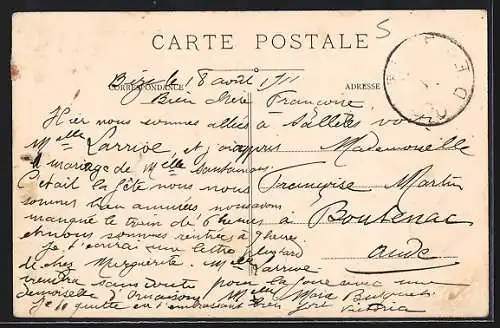 CARTE POSTALE
Bize le 18 août 1911
CORRESPONDANCE
ADRESSE
Bien chère Françoise
Hier nous sommes allées à Salleles voir
Melle Larrive, et j'ai appris
mariage de Melle
C'était la fête nous nous
sommes bien amusées nous avons
manqué le train de 6 heures
et nous sommes rentrées à 9 heures
Je t'écrirai une lettre plus tard
de chez Marguerite. Melle Larrive
viendra sans doute pour la foire avec une
demoiselle d'Ornaisons Melle Marie
Je te quitte en t'embrassant bien fort
Victoria
Mademoiselle
Françoise Martin
à Boutenac
Aude